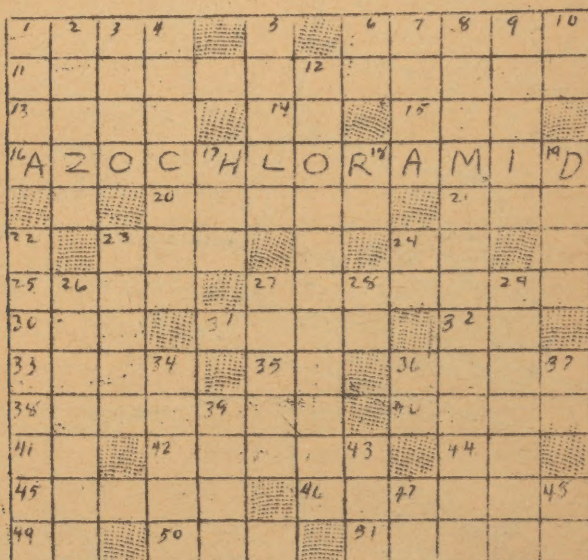 1 2 3 4 5 6 7 8 9 10
11 12
13 14 15
16 A Z O C 17 H L O R 18 A M I 19 D
20 21
22 23 24
25 26 27 28 29
30 31 32
33 34 35 36 37
38 39 40
41 42 43 44
45 46 47 48
49 50 51